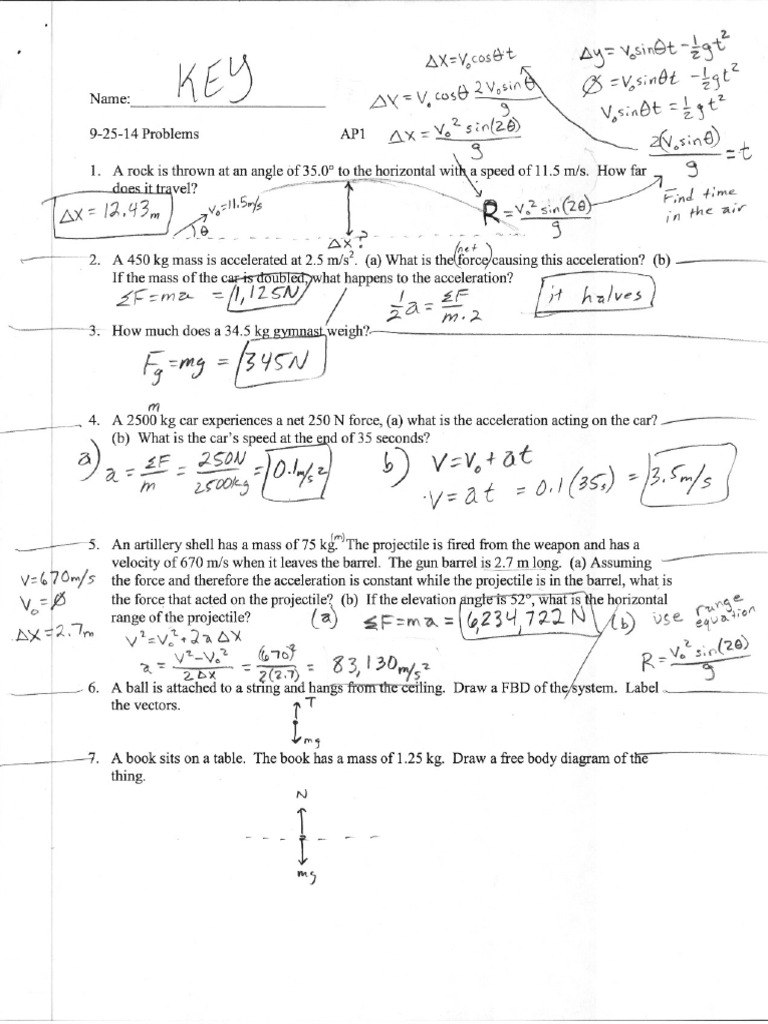 KEY
Name:
Δx=V₀cosθt
Δx = V₀ cosθ 2V₀sinθ/g
Δx = V₀² sin(2θ)/g
Δy = V₀sinθt - ½gt²
Ø = V₀sinθt - ½gt²
V₀sinθt = ½gt²
2(V₀sinθ)/g = t
Find time
in the air
9-25-14 Problems AP1
1. A rock is thrown at an angle of 35.0° to the horizontal with a speed of 11.5 m/s. How far
does it travel?
Δx = 12.43m
V₀=11.5m/s
θ
Δx?
R = V₀² sin(2θ)/g
(net)
2. A 450 kg mass is accelerated at 2.5 m/s². (a) What is the force causing this acceleration? (b)
If the mass of the car is doubled, what happens to the acceleration?
ΣF=ma = 1,125N
½a = ΣF/m·2
it halves
3. How much does a 34.5 kg gymnast weigh?
Fg=mg = 345N
m
4. A 2500 kg car experiences a net 250 N force, (a) what is the acceleration acting on the car?
(b) What is the car's speed at the end of 35 seconds?
a) a = ΣF/m = 250N/2500kg = 0.1m/s²
b) V=V₀+at
V=at = 0.1(35s) = 3.5m/s
5. An artillery shell has a mass of 75 kg.(m) The projectile is fired from the weapon and has a
velocity of 670 m/s when it leaves the barrel. The gun barrel is 2.7 m long. (a) Assuming
the force and therefore the acceleration is constant while the projectile is in the barrel, what is
the force that acted on the projectile? (b) If the elevation angle is 52°, what is the horizontal
range of the projectile?
V=670m/s
V₀=Ø
Δx=2.7m
(a) ΣF=ma = 6,234,722N
(b) use range
equation
R = V₀² sin(2θ)/g
V²=V₀²+2aΔx
a = V²-V₀²/2Δx = (670)²/2(2.7) = 83,130m/s²
6. A ball is attached to a string and hangs from the ceiling. Draw a FBD of the system. Label
the vectors.
T
mg
7. A book sits on a table. The book has a mass of 1.25 kg. Draw a free body diagram of the
thing.
N
mg